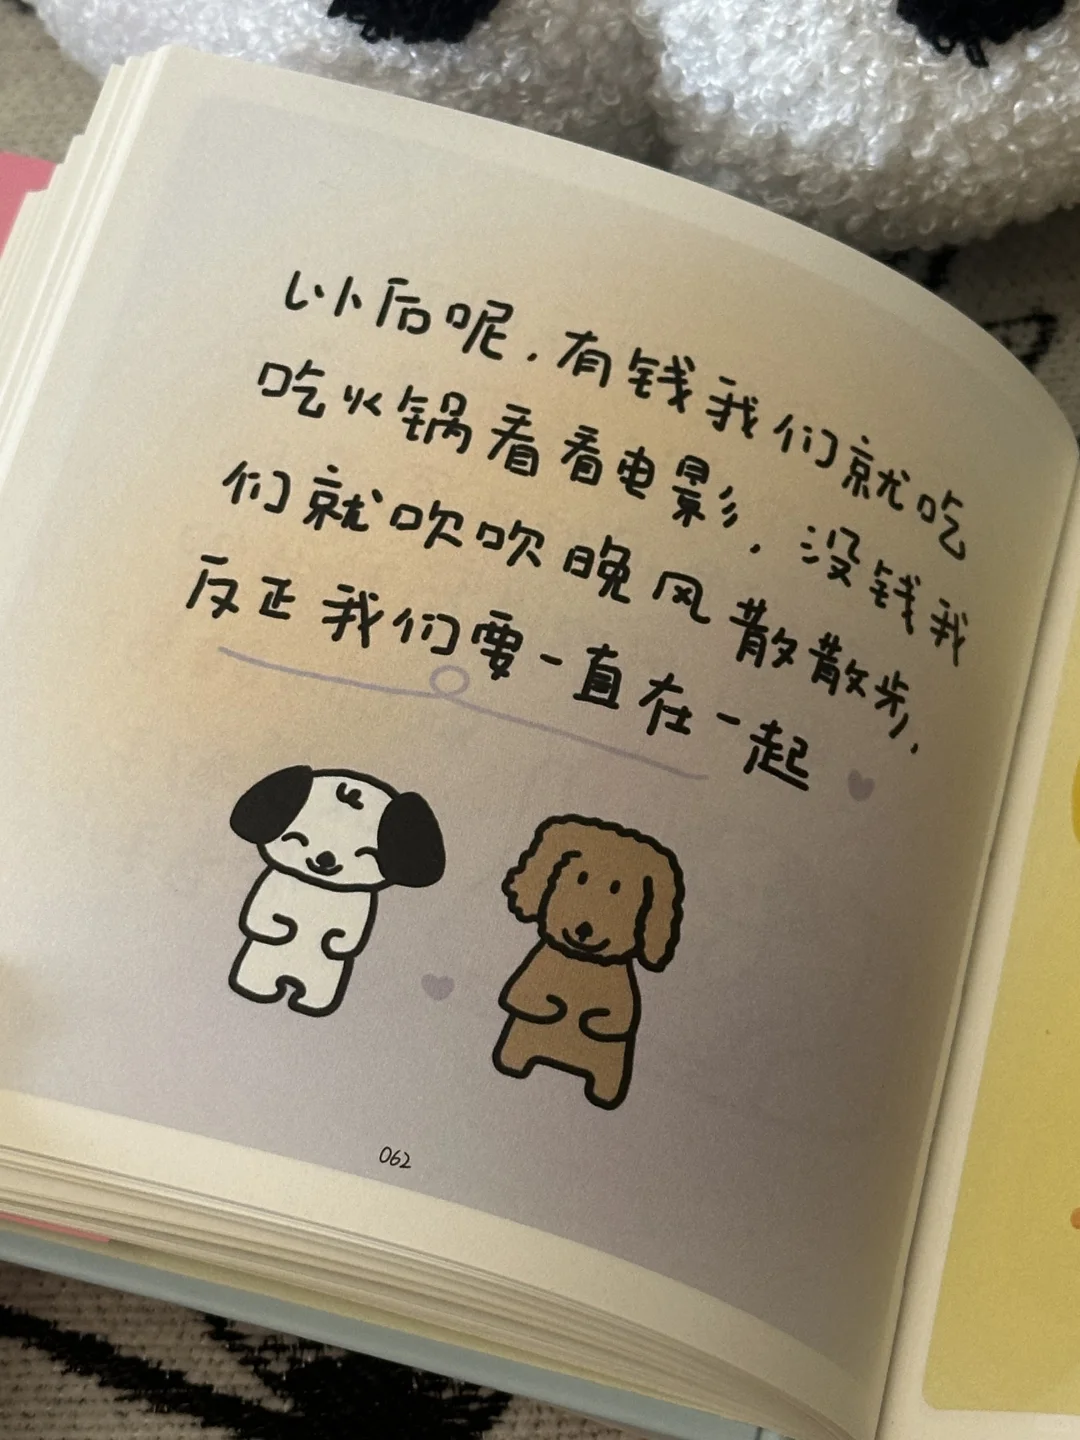 以后呢,有钱我们就吃
吃火锅看看电影,没钱我
们就吹吹晚风散散步,
反正我们要一直在一起
062